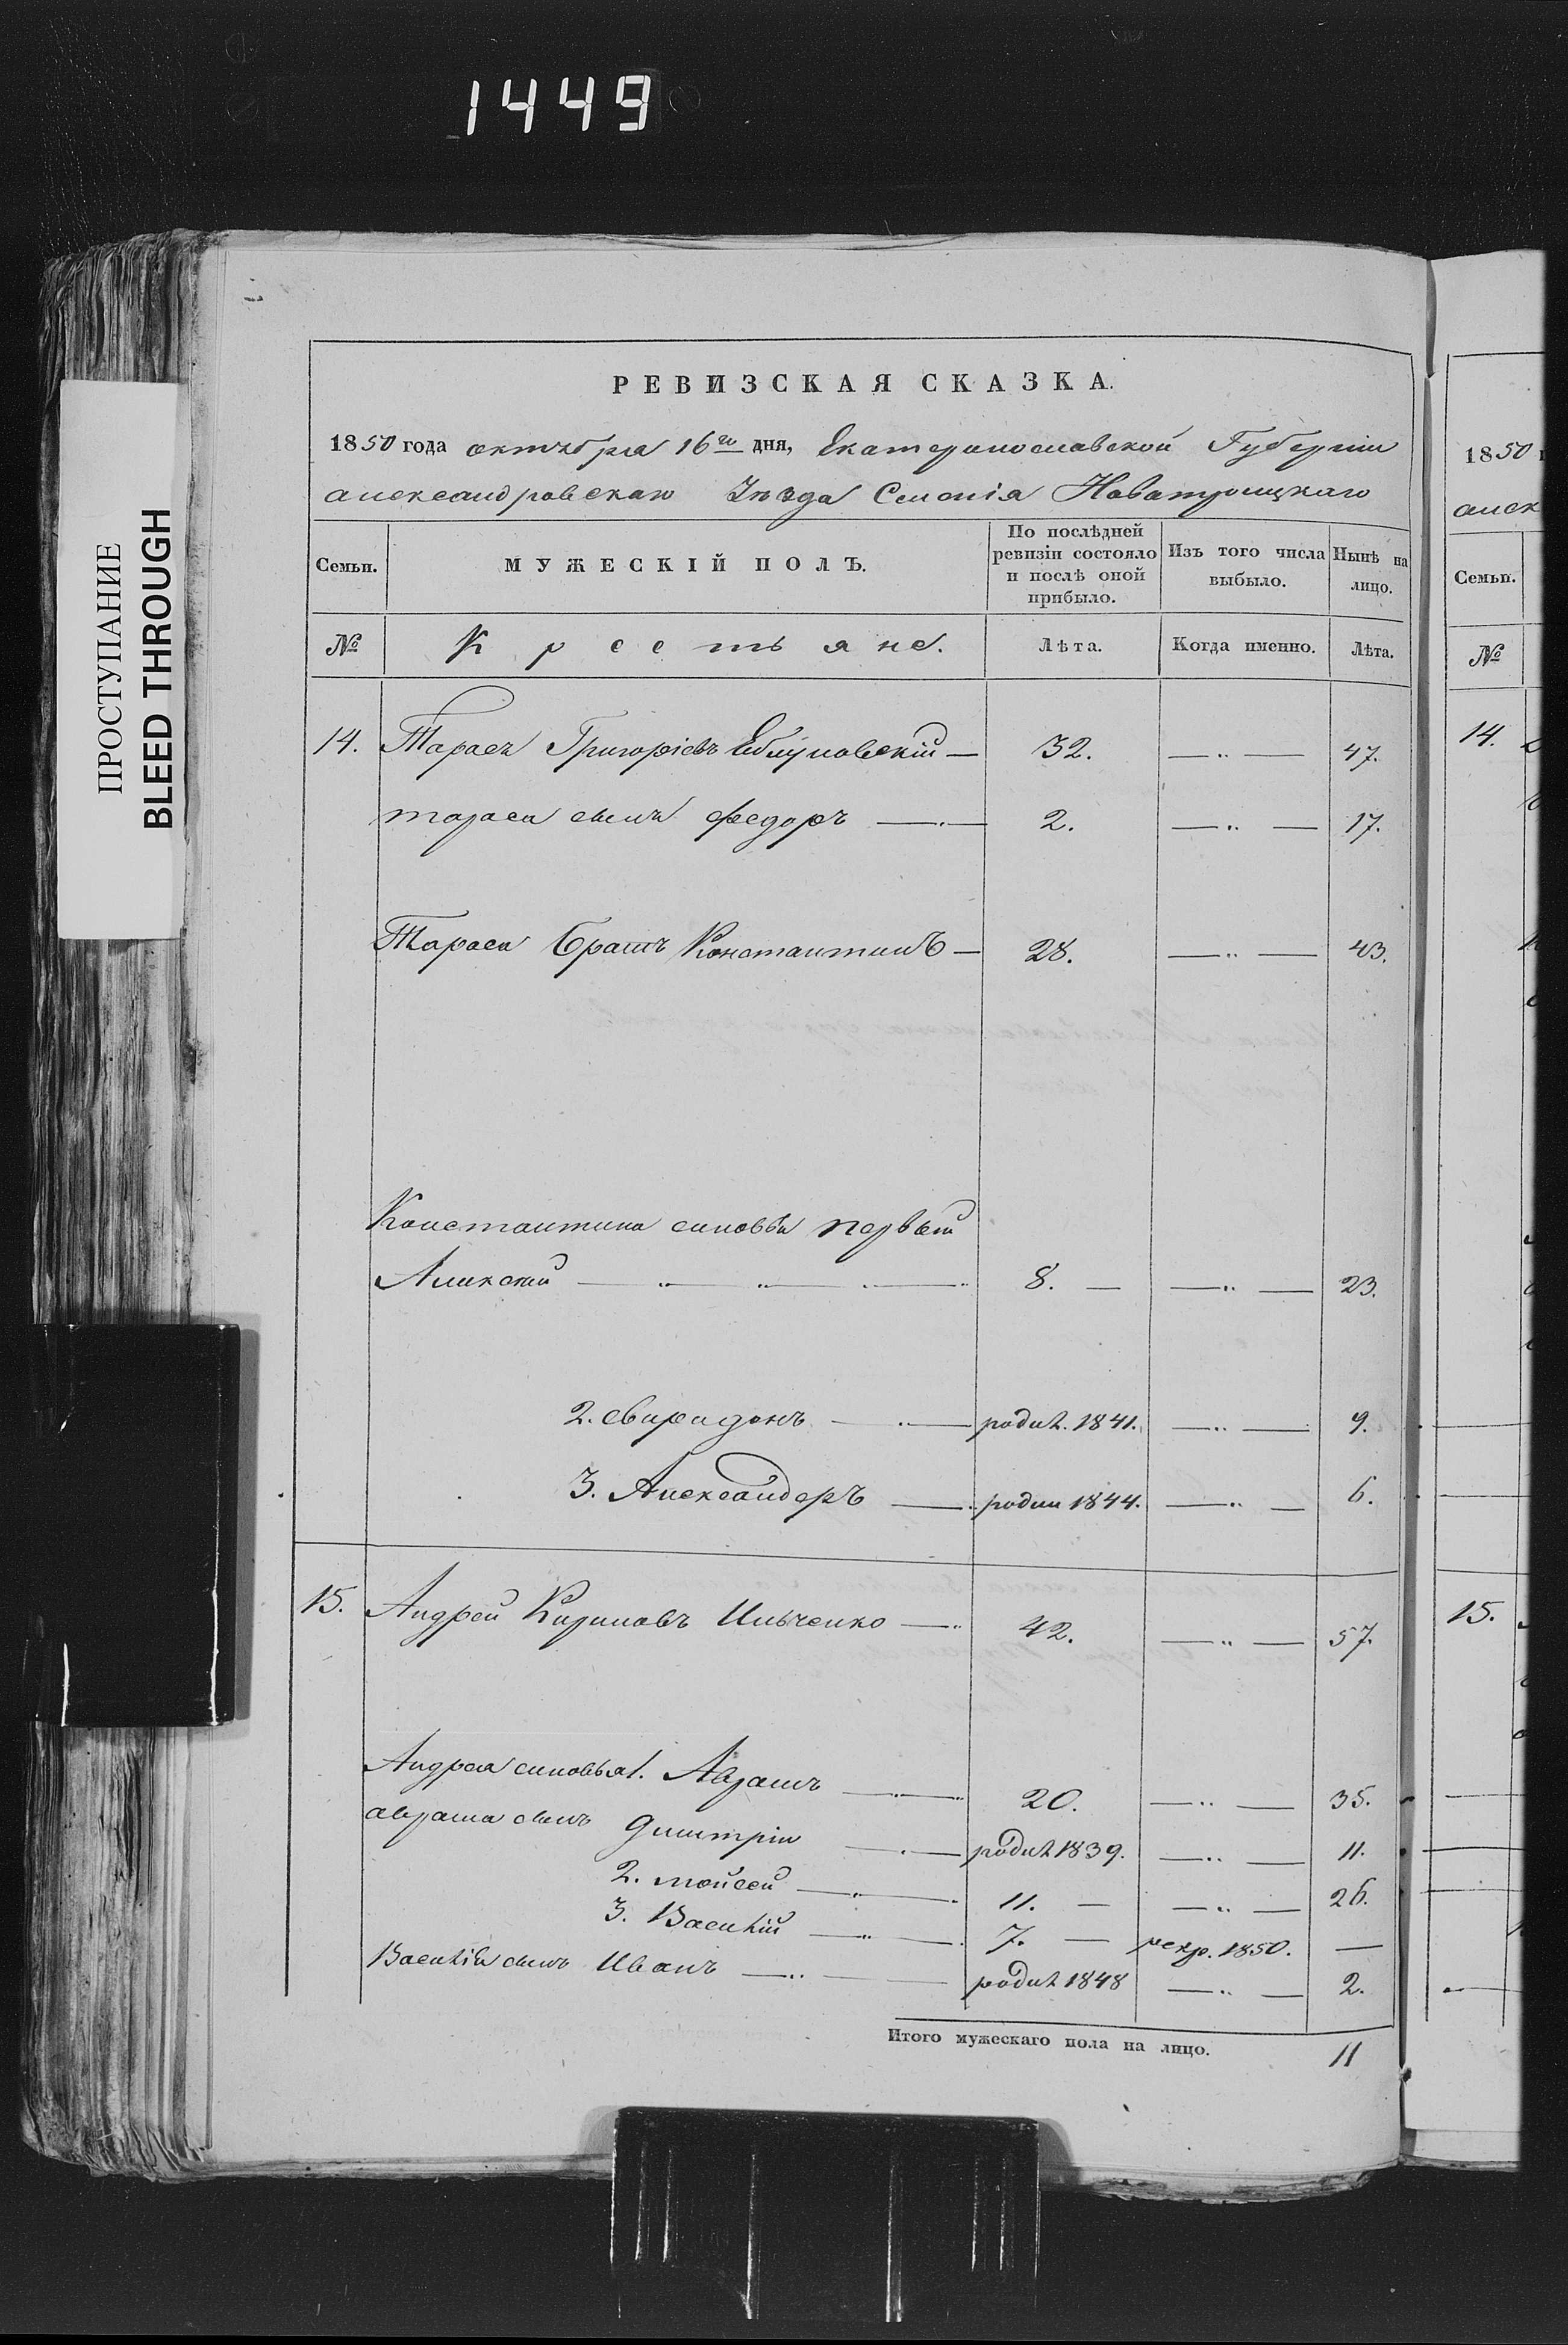 1449
ПРОСТУПАНИЕ
BLEED THROUGH
РЕВИЗСКАЯ СКАЗКА.
1850 года октября 16го дня, Екатеринославской Губернии
александровскаго Уезда Селенія Новатроицкаго
Семьи. МУЖЕСКІЙ ПОЛЪ. По послѣдней ревизіи состояло и послѣ оной прибыло. Изъ того числа выбыло. Нынѣ на лицо.
№ Крестьяне. Лѣта. Когда именно. Лѣта.
14. Тарасъ Григорієвъ 32. —„— 47.
тараса сынъ федоръ —„— 2. —„— 17.
Тараса братъ Константинъ — 28. —„— 43.
Константина сыновья первый
Аликсей —„—„—„— 8. — —„— 23.
2. свиридонъ —„— родил. 1841. —„— 9.
3. Александеръ —„ родил 1844. —„— 6.
15. Андрей Кириловъ Ильченко —„ 42. —„— 57.
Андрея сыновья 1. Аврамъ —„— 20. —„— 35.
аврама сынъ Дмитрій —„— родил 1839. —„— 11.
2. мойсей —„— 11. — —„— 26.
3. Василій —„— 7. — рекр. 1850. —
Василія сынъ Иванъ —„— родил 1848 —„— 2.
Итого мужескаго пола на лицо. 11
1850
алек
Семьи.
№
14.
15.